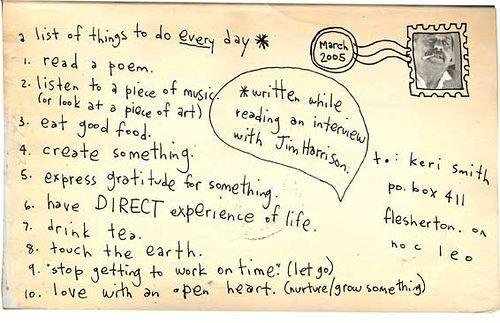 a list of things to do every day *
1. read a poem.
2. listen to a piece of music.
(or look at a piece of art)
3. eat good food.
4. create something.
5. express gratitude for something.
6. have DIRECT experience of life.
7. drink tea.
8. touch the earth.
9. "stop getting to work on time." (let go)
10. love with an open heart. (nurture/grow something)
March
2005
* written while
reading an interview
with Jim Harrison.
to: keri smith
po. box 411
flesherton. on
noc 1eo